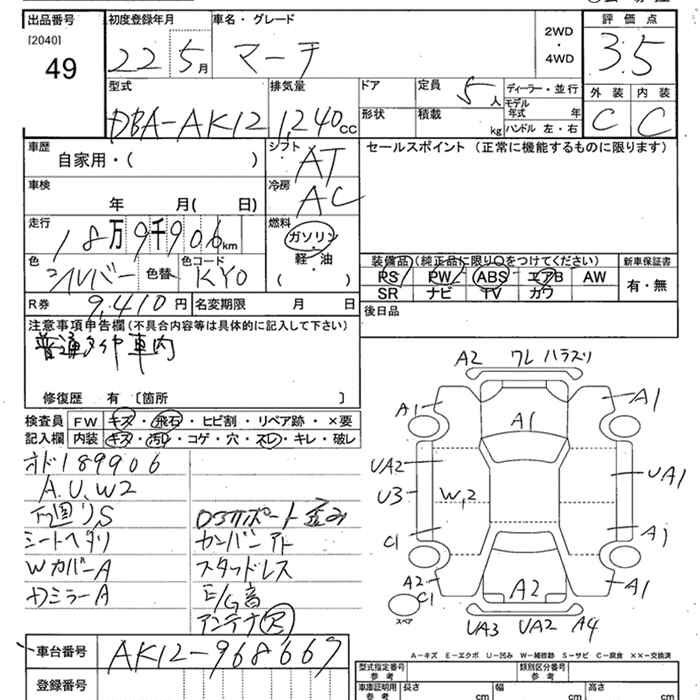 出品番号 初度登録年月 車名・グレード 2WD・4WD 評価点
[2040]
49 22 5月 マーチ 3.5
型式 排気量 ドア 定員 5人 ディーラー・並行 外装 内装
モデル年式 年
DBA-AK12 1,240cc 形状 積載 kg ハンドル 左・右 C C
車歴 シフト セールスポイント (正常に機能するものに限ります)
自家用・( ) AT
車検 冷房
年 月( 日) AC
走行 燃料
18万9千906km ガソリン
軽・油
( )
色 色替 色コード 装備品(純正品に限り○をつけてください) 新車保証書
シルバー KY0 PS PW ABS エアB AW 有・無
SR ナビ TV カワ
R券 9,410円 名変期限 月 日 後日品
注意事項申告欄(不具合内容等は具体的に記入して下さい)
普通 車内
修復歴 有 〔箇所 〕
検査員 FW キズ・飛石・ヒビ割・リペア跡・×要
記入欄 内装 キズ・汚レ・コゲ・穴・スレ・キレ・破レ
オド189906
A.U.W2
下廻りS D3サポート歪み
シートヘタリ カンバンアト
WカバーA スタッドレス
ドミラーA E/G音
アンテナ欠
A2 ワレ ハラスリ
A1 A1 A1
UA2 UA1
U3 W2
C1 A1
A2 C1 A2 A1
スペア
UA3 UA2 A4
車台番号 AK12-968667
登録番号
A-キズ E-エクボ U-凹み W-補修跡 S-サビ C-腐食 ××-交換済
型式指定番号 参考 類別区分番号 参考
車庫証明用 参考 長さ cm 幅 cm 高さ cm